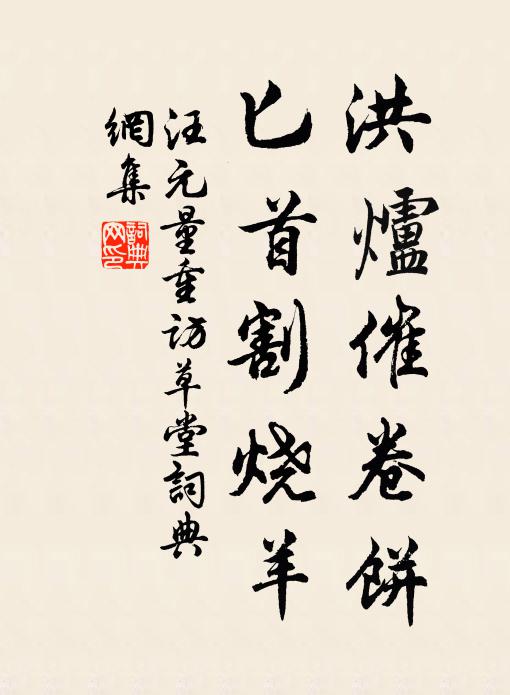 洪爐催卷餅
匕首割烧羊
汪元量重访草堂詞典
網集
詞典網印